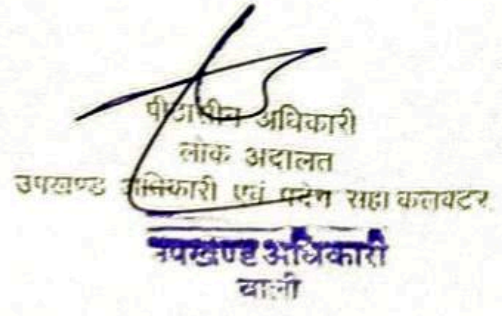 पीठासीन अधिकारी
लोक अदालत
उपखण्ड अधिकारी एवं पदेन सहा कलक्टर
उपखण्ड अधिकारी
बाली